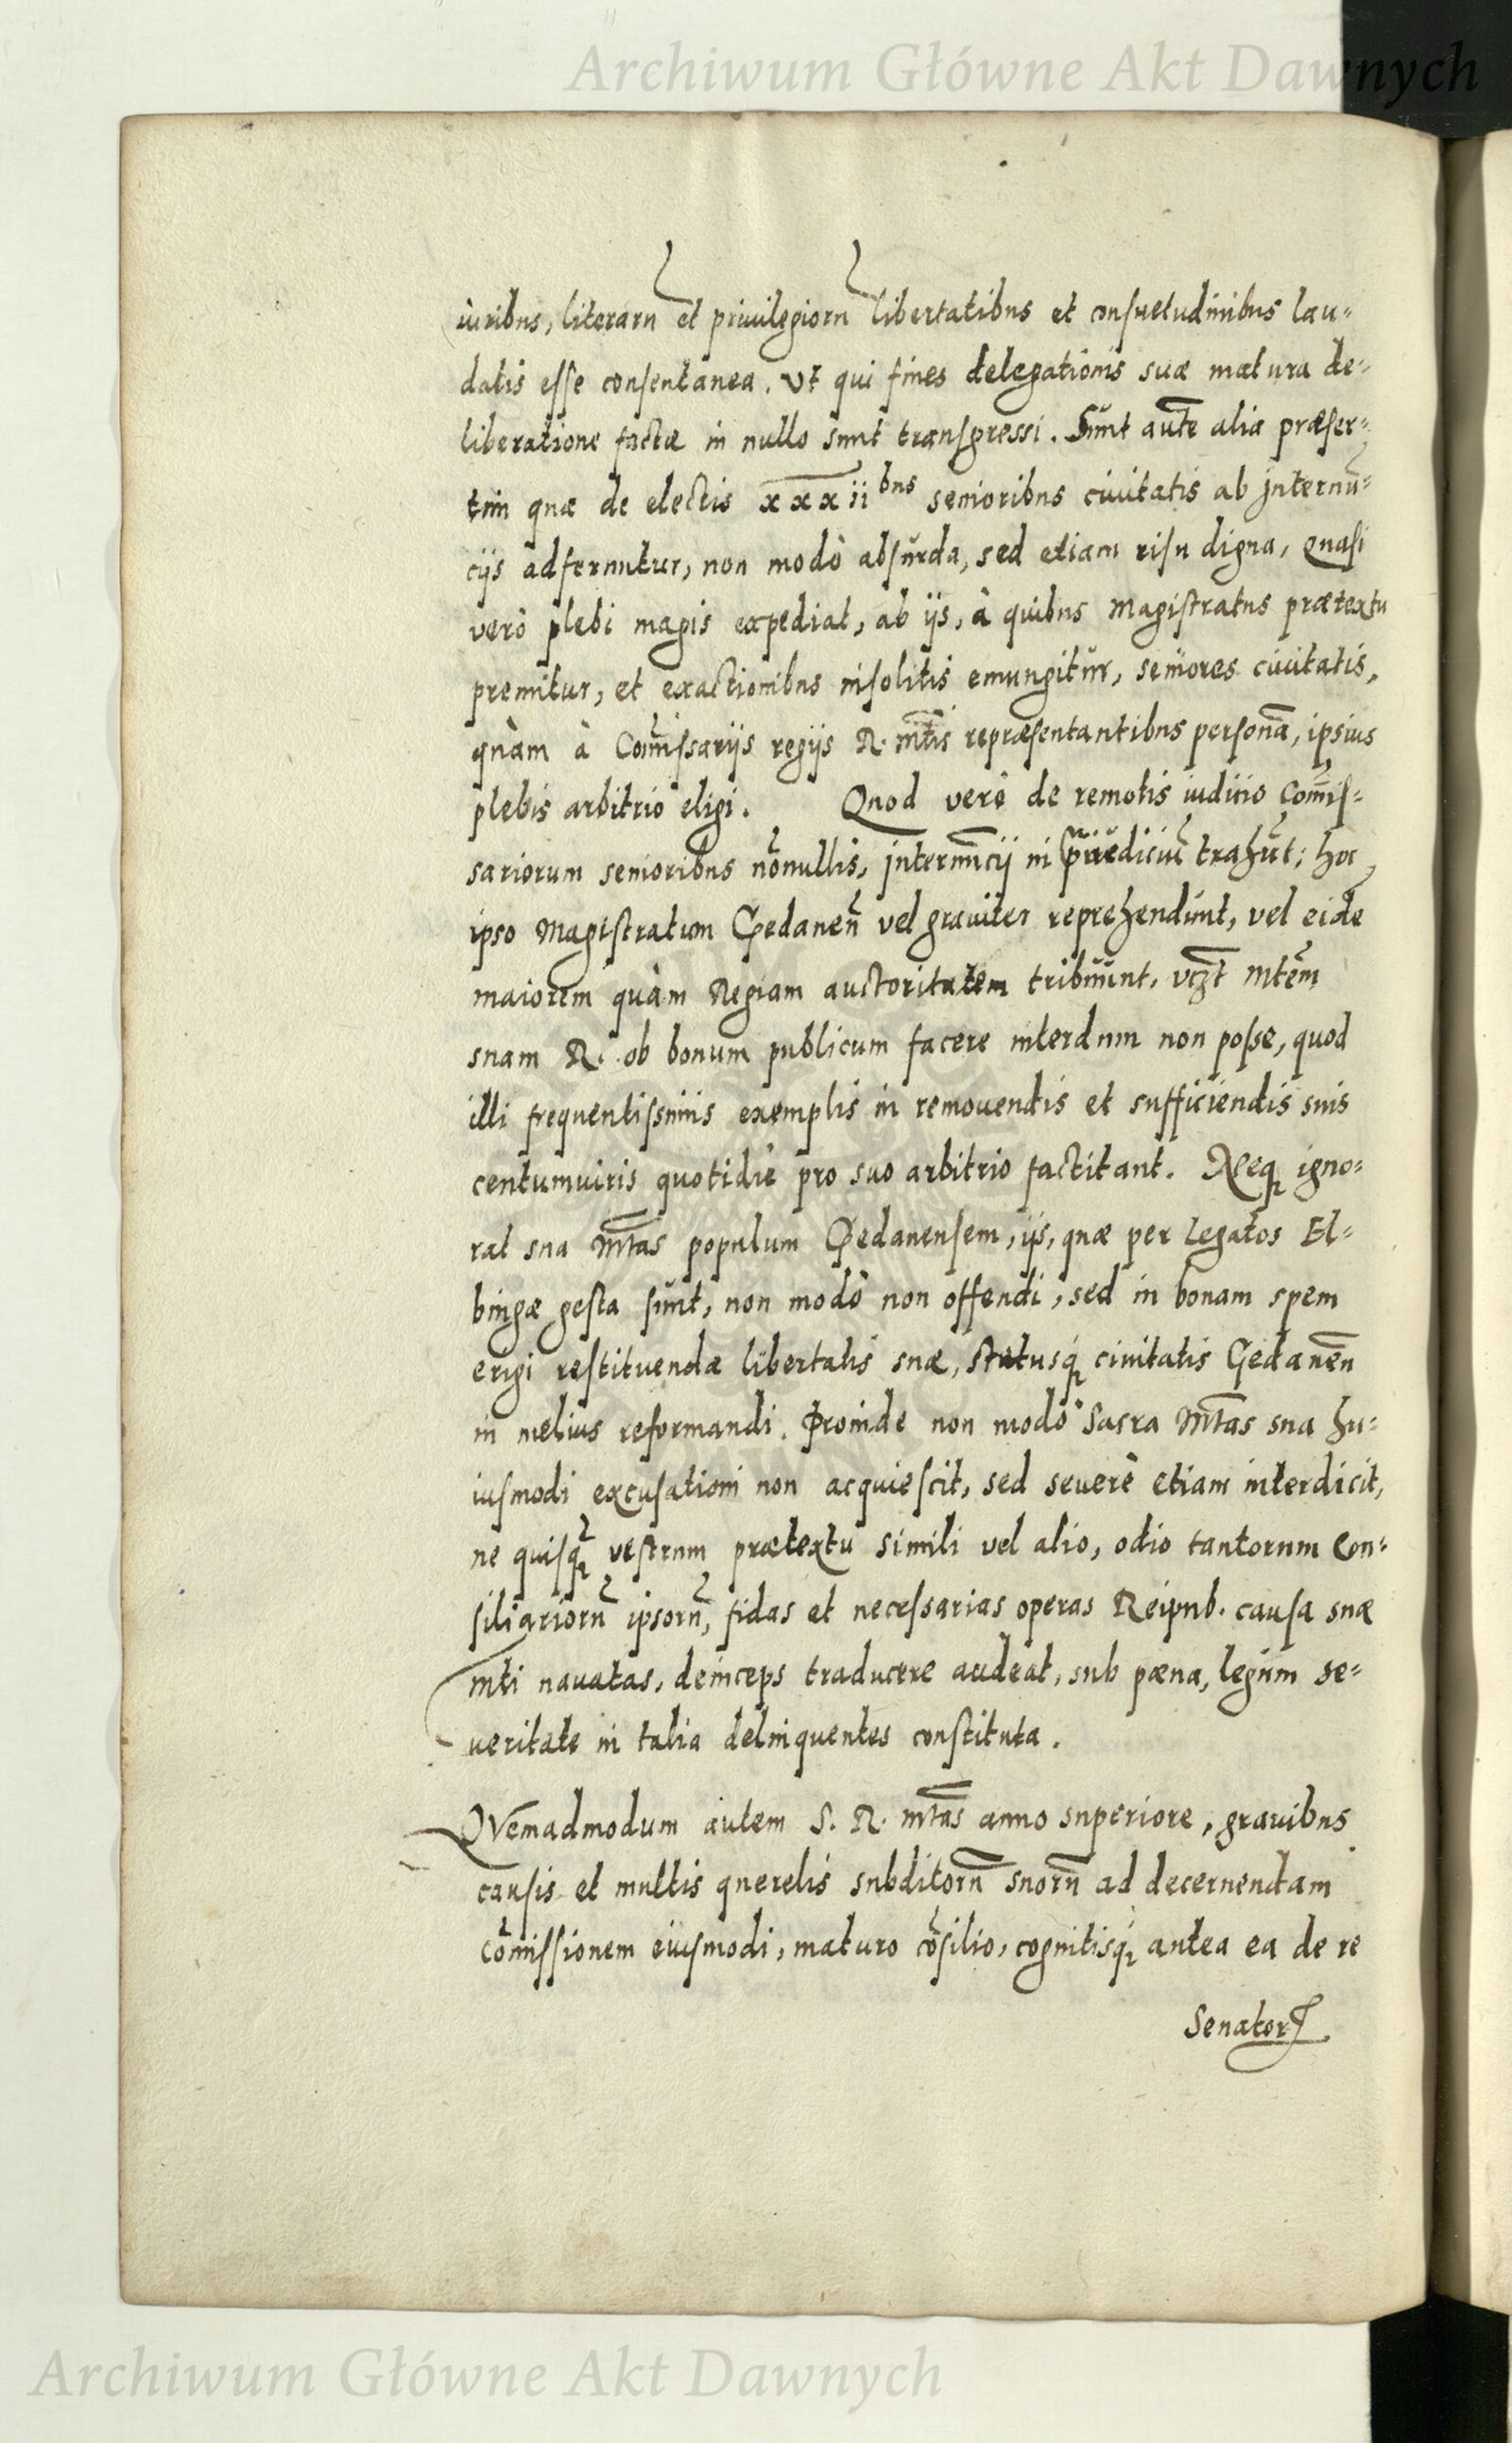 Archiwum Główne Akt Dawnych
iuribus, literarū et priuilegiorū libertatibus et consuetudinibus lau=
datis esse consentanea. vt qui fines delegationis suæ matura de=
liberatione factæ in nullo sunt transgressi. Sunt autē alia præser=
tim quæ de electis xxxii bus senioribus ciuitatis ab internū=
cijs adferuntur, non modò absurda, sed etiam risu digna, quasi
verò plebi magis expediat, ab ijs, à quibus Magistratus prætextu
premitur, et exactionibus insolitis emungitur, seniores ciuitatis,
quàm à Com̄issarijs regijs R. mt̄is repræsentantibus personā, ipsius
plebis arbitrio eligi. Quod verò de remotis iudicio Com̄is=
sariorum senioribus nōnullis, internuncij in p̃iudiciū trahūt; hoc
ipso Magistratum Gedaneñ vel grauiter reprehendunt, vel eidē
maiorem quàm Regiam auctoritatem tribuunt, vczt̄ Mtēm
suam R. ob bonum publicum facere interdum non posse, quod
illi frequentissimis exemplis in remouendis et sufficiendis suis
centumuiris quotidiè pro suo arbitrio factitant. Neq̨ igno=
rat sua Mt̄as populum Gedanensem, ijs, quæ per Legatos El=
bingæ gesta sunt, non modò non offendi, sed in bonam spem
erigi restituendæ libertatis suæ, statusq̨ ciuitatis Gedanen̄
in melius reformandi. Proinde non modò Sacra Mt̄as sua hu=
iusmodi excusationi non acquiescit, sed seuerè etiam interdicit,
ne quisq̨̄ vestrum prætextu simili vel alio, odio tantorum Con=
siliariorū ipsorū, fidas et necessarias operas Reipub. causa suæ
mti nauatas, deinceps traducere audeat, sub pæna, legum se=
ueritate in talia delinquentes constituta.
QVemadmodum autem S. R. mt̄as anno superiore, grauibus
causis et multis querelis subditorū suorū ad decernendam
cōmissionem eiusmodi, maturo cōsilio, cognitisq̨ antea ea de re
Senatorꝭ
Archiwum Główne Akt Dawnych